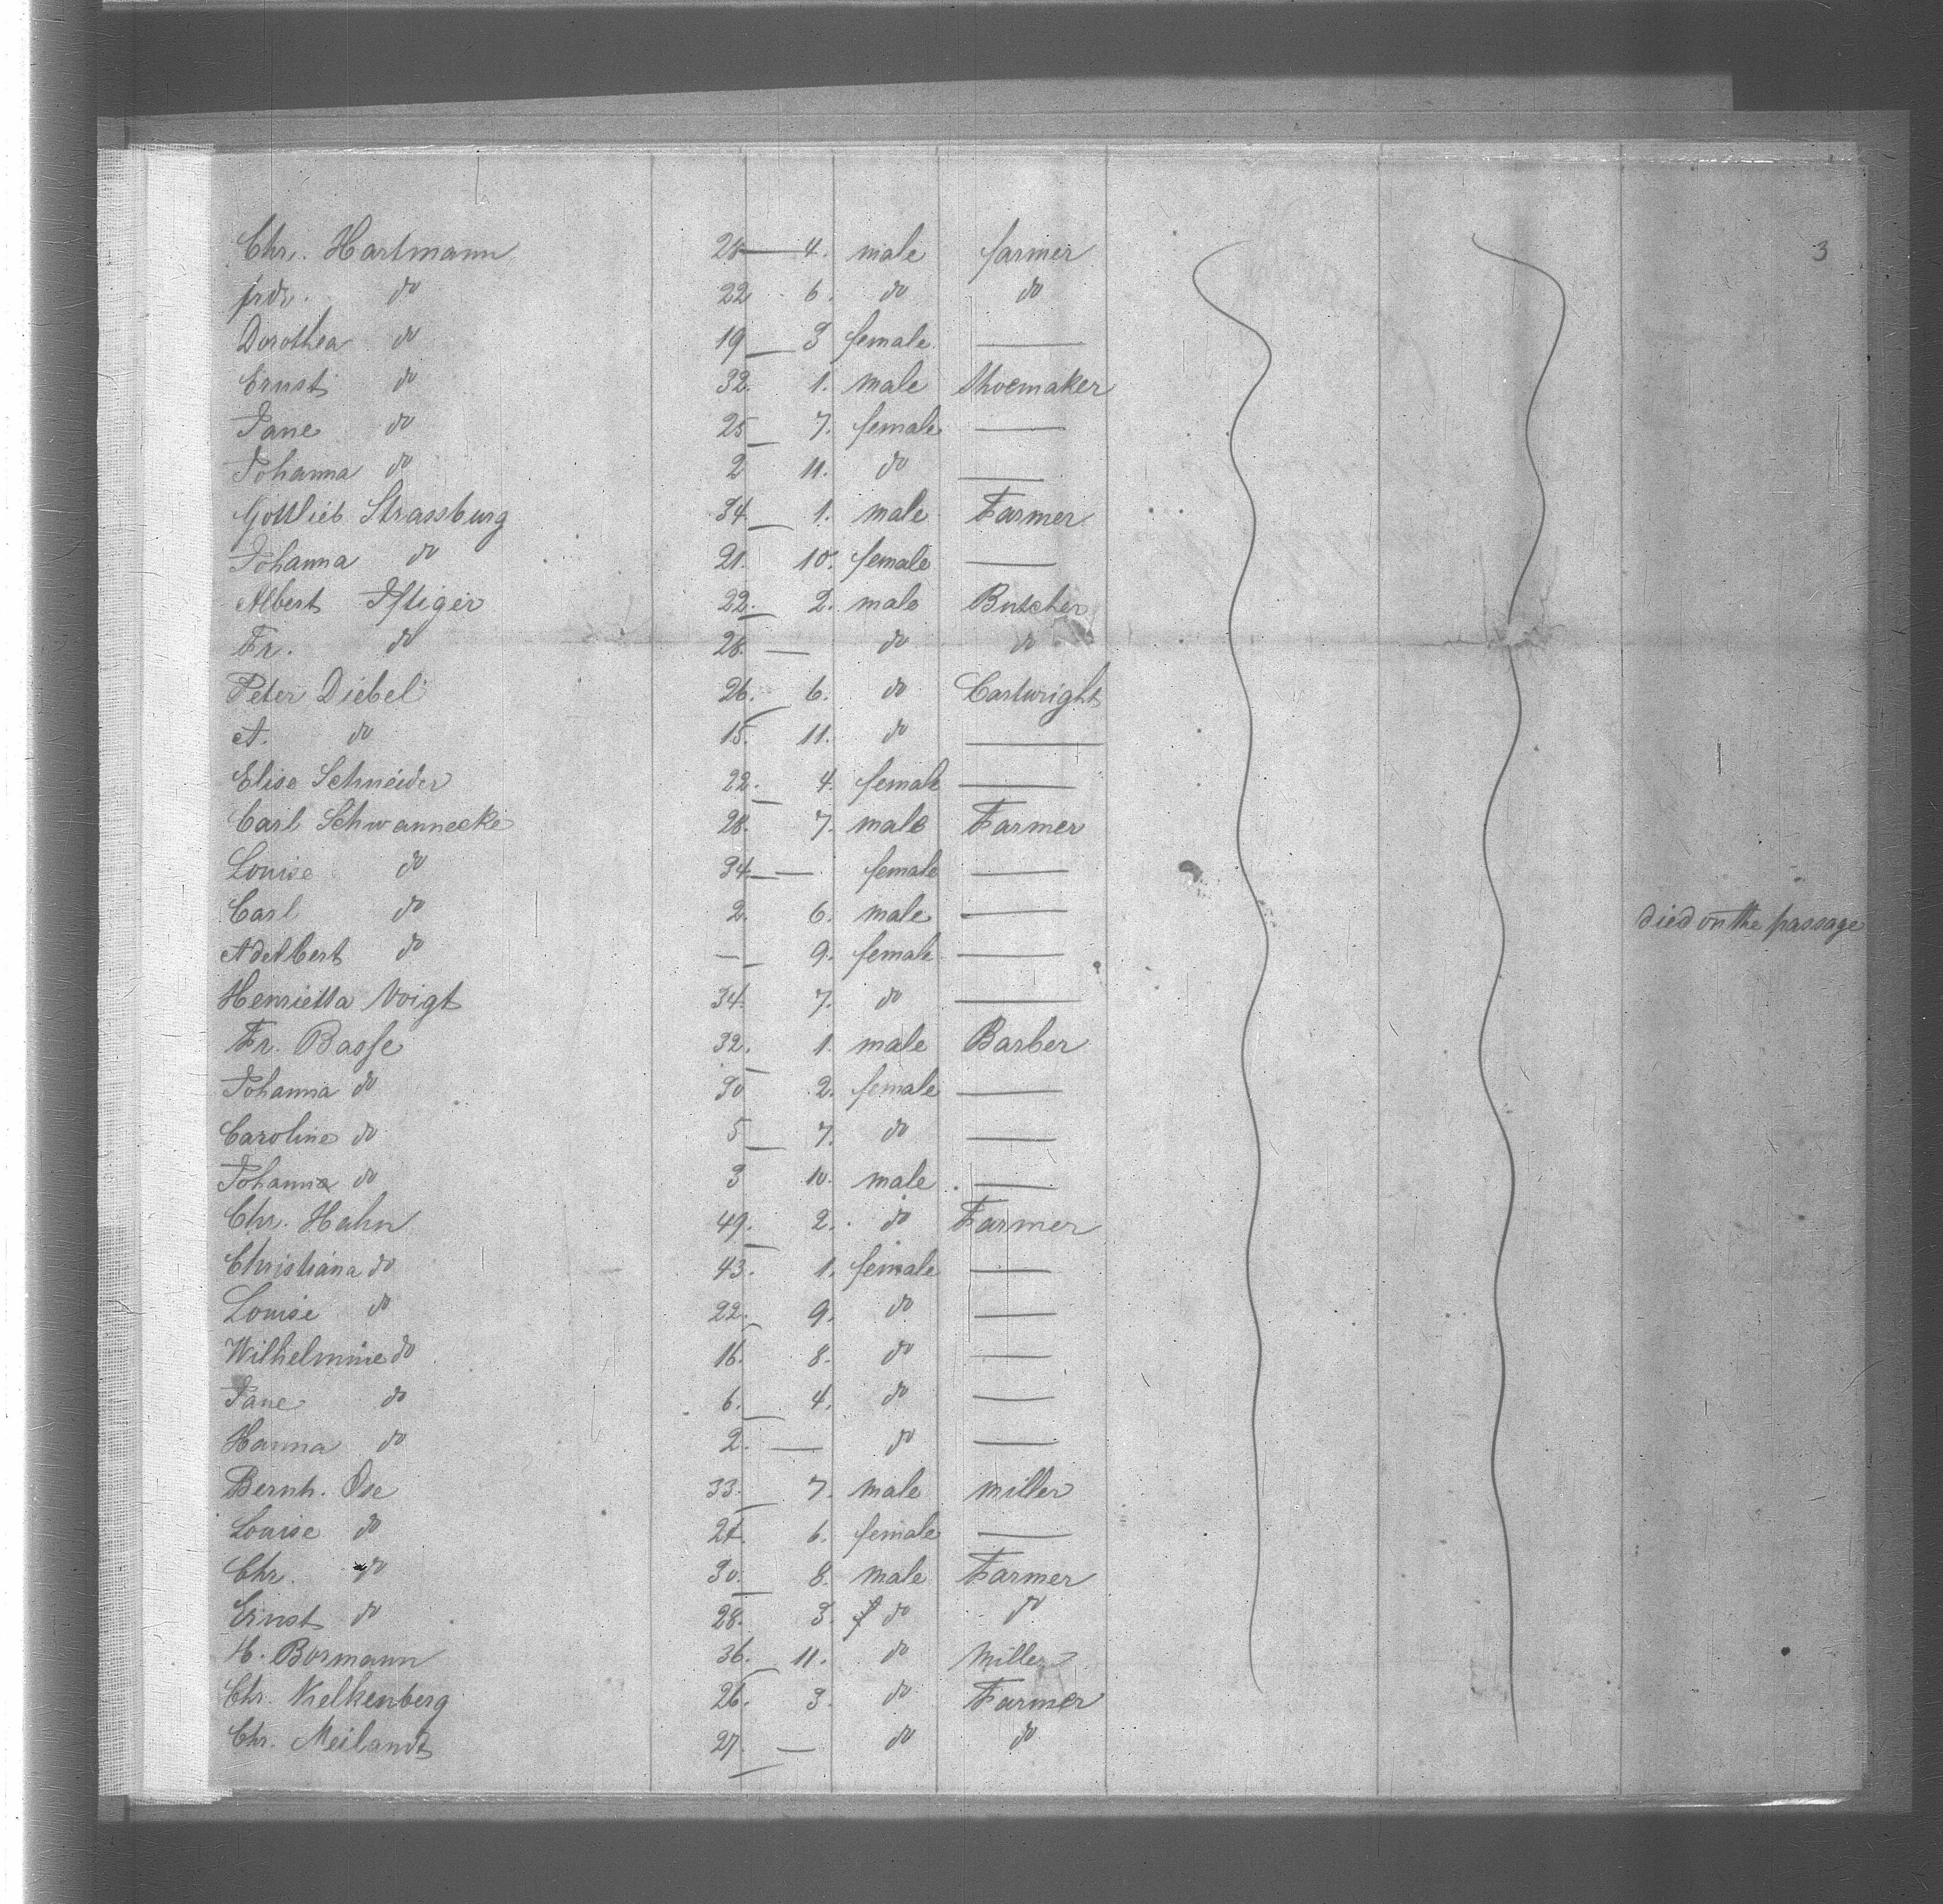 3
Chr. Hartmann 28 — 4. male farmer
frdr. do 22 6. do do
Dorothea do 19 — 3 female —
Ernst do 32. 1. male Shoemaker
Jane do 25 — 7. female —
Johanna do 2 11. do —
Gottlieb Strassburg 34. — 1. male Farmer
Johanna do 21. 10. female —
Albert 22. — 2. male Butcher
Fr. do 28. — do do
Peter Diebel 26. 6. do Cartwright
A. do 15. 11. do —
Elise Schneider 22. 4. female —
Carl Schwannecke 28. 7. male Farmer
Louise do 34. — female —
Carl do 2. 6. male — died on the passage
Adelbert do — 9. female —
Henrietta Voigt 34. 7. do —
Fr. Basse 32. 1. male Barber
Johanna do 30 2. female —
Caroline do 5 — 7. do —
Johanna do 3 10. male —
Chr. Hahn 49. 2. do Farmer
Christiana do 43. 1. female —
Louise do 22. 9. do —
Wilhelmine do 16. 8. do —
Jane do 6. 4. do —
Hanna do 2. — do —
Bernh. Ose 33. 7. male miller
Louise do 6. female —
Chr. do 30. 8. male Farmer
Ernst do 28. 3. do do
H. Bormann 36. 11. do Miller
Chr. Kelkenberg 26. 3. do Farmer
Chr. Meilandt 27. — do do